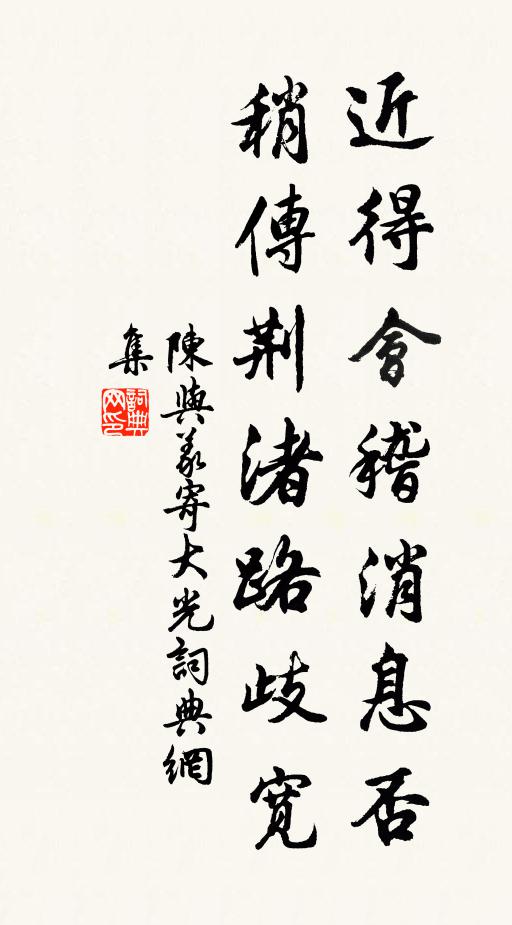 近得會稽消息否
稍傳荆渚路歧寬
陳與義寄大光詞典網
集
詞典网印